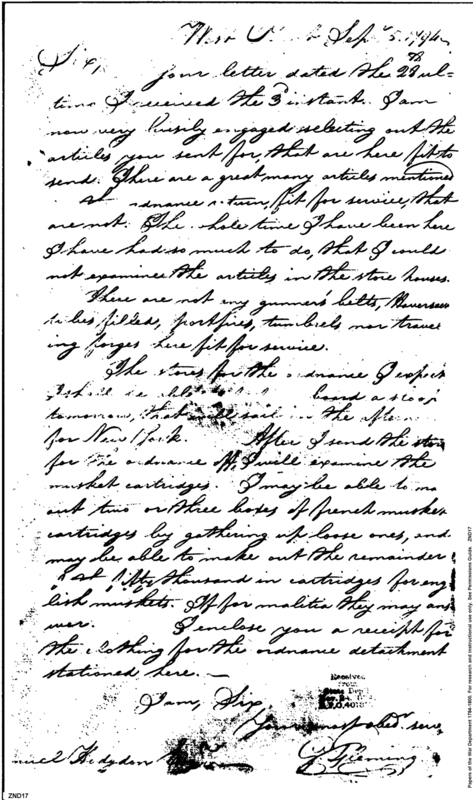 West Point Sepr 5. 1794
Sir,
Your letter dated the 28 ul-
timo I received the 3d instant. I am
now very busily engaged selecting out the
articles you sent for, that are here fit to
send. There are a great many articles mentioned
ordnance return, fit for service, that
are not. The whole time I have been here
I have had so much to do, that I could
not examine the articles in the store houses.
There are not any gunner's belts,
tubes filled, portfires, tumbrels nor travel
ing forges here fit for service.
The stores for the ordnance I expect
I shall be able board a sloop
tomorrow, that will sail in the
for New York. After I send the stores
for the ordnance off, I will examine the
musket cartridges. I may be able to ma
out two or three boxes of french musket
cartridges by gathering up loose ones, and
may be able to make out the remainder
fifty thousand in cartridges for eng
lish muskets. If for malitia they may ans
wer. I enclose you a receipt for
the clothing for the ordnance detachment
stationed here. —
I am, Sir,
Your most obedt serv
G Fleming
Samuel Hodgdon
Received
from
State Dept
ZND17
Papers of the War Department 1784-1800. For research and instructional use only. See Permissions Guide. ZND17